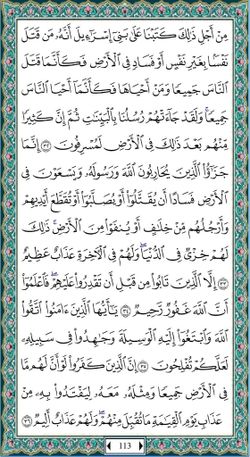 مِنْ أَجْلِ ذَٰلِكَ كَتَبْنَا عَلَىٰ بَنِىٓ إِسْرَٰٓءِيلَ أَنَّهُۥ مَن قَتَلَ
نَفْسًۢا بِغَيْرِ نَفْسٍ أَوْ فَسَادٍ فِى ٱلْأَرْضِ فَكَأَنَّمَا قَتَلَ
ٱلنَّاسَ جَمِيعًا وَمَنْ أَحْيَاهَا فَكَأَنَّمَآ أَحْيَا ٱلنَّاسَ
جَمِيعًا ۚ وَلَقَدْ جَآءَتْهُمْ رُسُلُنَا بِٱلْبَيِّنَٰتِ ثُمَّ إِنَّ كَثِيرًا
مِّنْهُم بَعْدَ ذَٰلِكَ فِى ٱلْأَرْضِ لَمُسْرِفُونَ ٣٢ إِنَّمَا
جَزَٰٓؤُا۟ ٱلَّذِينَ يُحَارِبُونَ ٱللَّهَ وَرَسُولَهُۥ وَيَسْعَوْنَ فِى
ٱلْأَرْضِ فَسَادًا أَن يُقَتَّلُوٓا۟ أَوْ يُصَلَّبُوٓا۟ أَوْ تُقَطَّعَ أَيْدِيهِمْ
وَأَرْجُلُهُم مِّنْ خِلَٰفٍ أَوْ يُنفَوْا۟ مِنَ ٱلْأَرْضِ ۚ ذَٰلِكَ
لَهُمْ خِزْىٌ فِى ٱلدُّنْيَا ۖ وَلَهُمْ فِى ٱلْأَخِرَةِ عَذَابٌ عَظِيمٌ
٣٣ إِلَّا ٱلَّذِينَ تَابُوا۟ مِن قَبْلِ أَن تَقْدِرُوا۟ عَلَيْهِمْ ۖ فَٱعْلَمُوٓا۟
أَنَّ ٱللَّهَ غَفُورٌ رَّحِيمٌ ٣٤ يَٰٓأَيُّهَا ٱلَّذِينَ ءَامَنُوا۟ ٱتَّقُوا۟
ٱللَّهَ وَٱبْتَغُوٓا۟ إِلَيْهِ ٱلْوَسِيلَةَ وَجَٰهِدُوا۟ فِى سَبِيلِهِۦ
لَعَلَّكُمْ تُفْلِحُونَ ٣٥ إِنَّ ٱلَّذِينَ كَفَرُوا۟ لَوْ أَنَّ لَهُم مَّا
فِى ٱلْأَرْضِ جَمِيعًا وَمِثْلَهُۥ مَعَهُۥ لِيَفْتَدُوا۟ بِهِۦ مِنْ
عَذَابِ يَوْمِ ٱلْقِيَٰمَةِ مَا تُقُبِّلَ مِنْهُمْ ۖ وَلَهُمْ عَذَابٌ أَلِيمٌ ٣٦
113